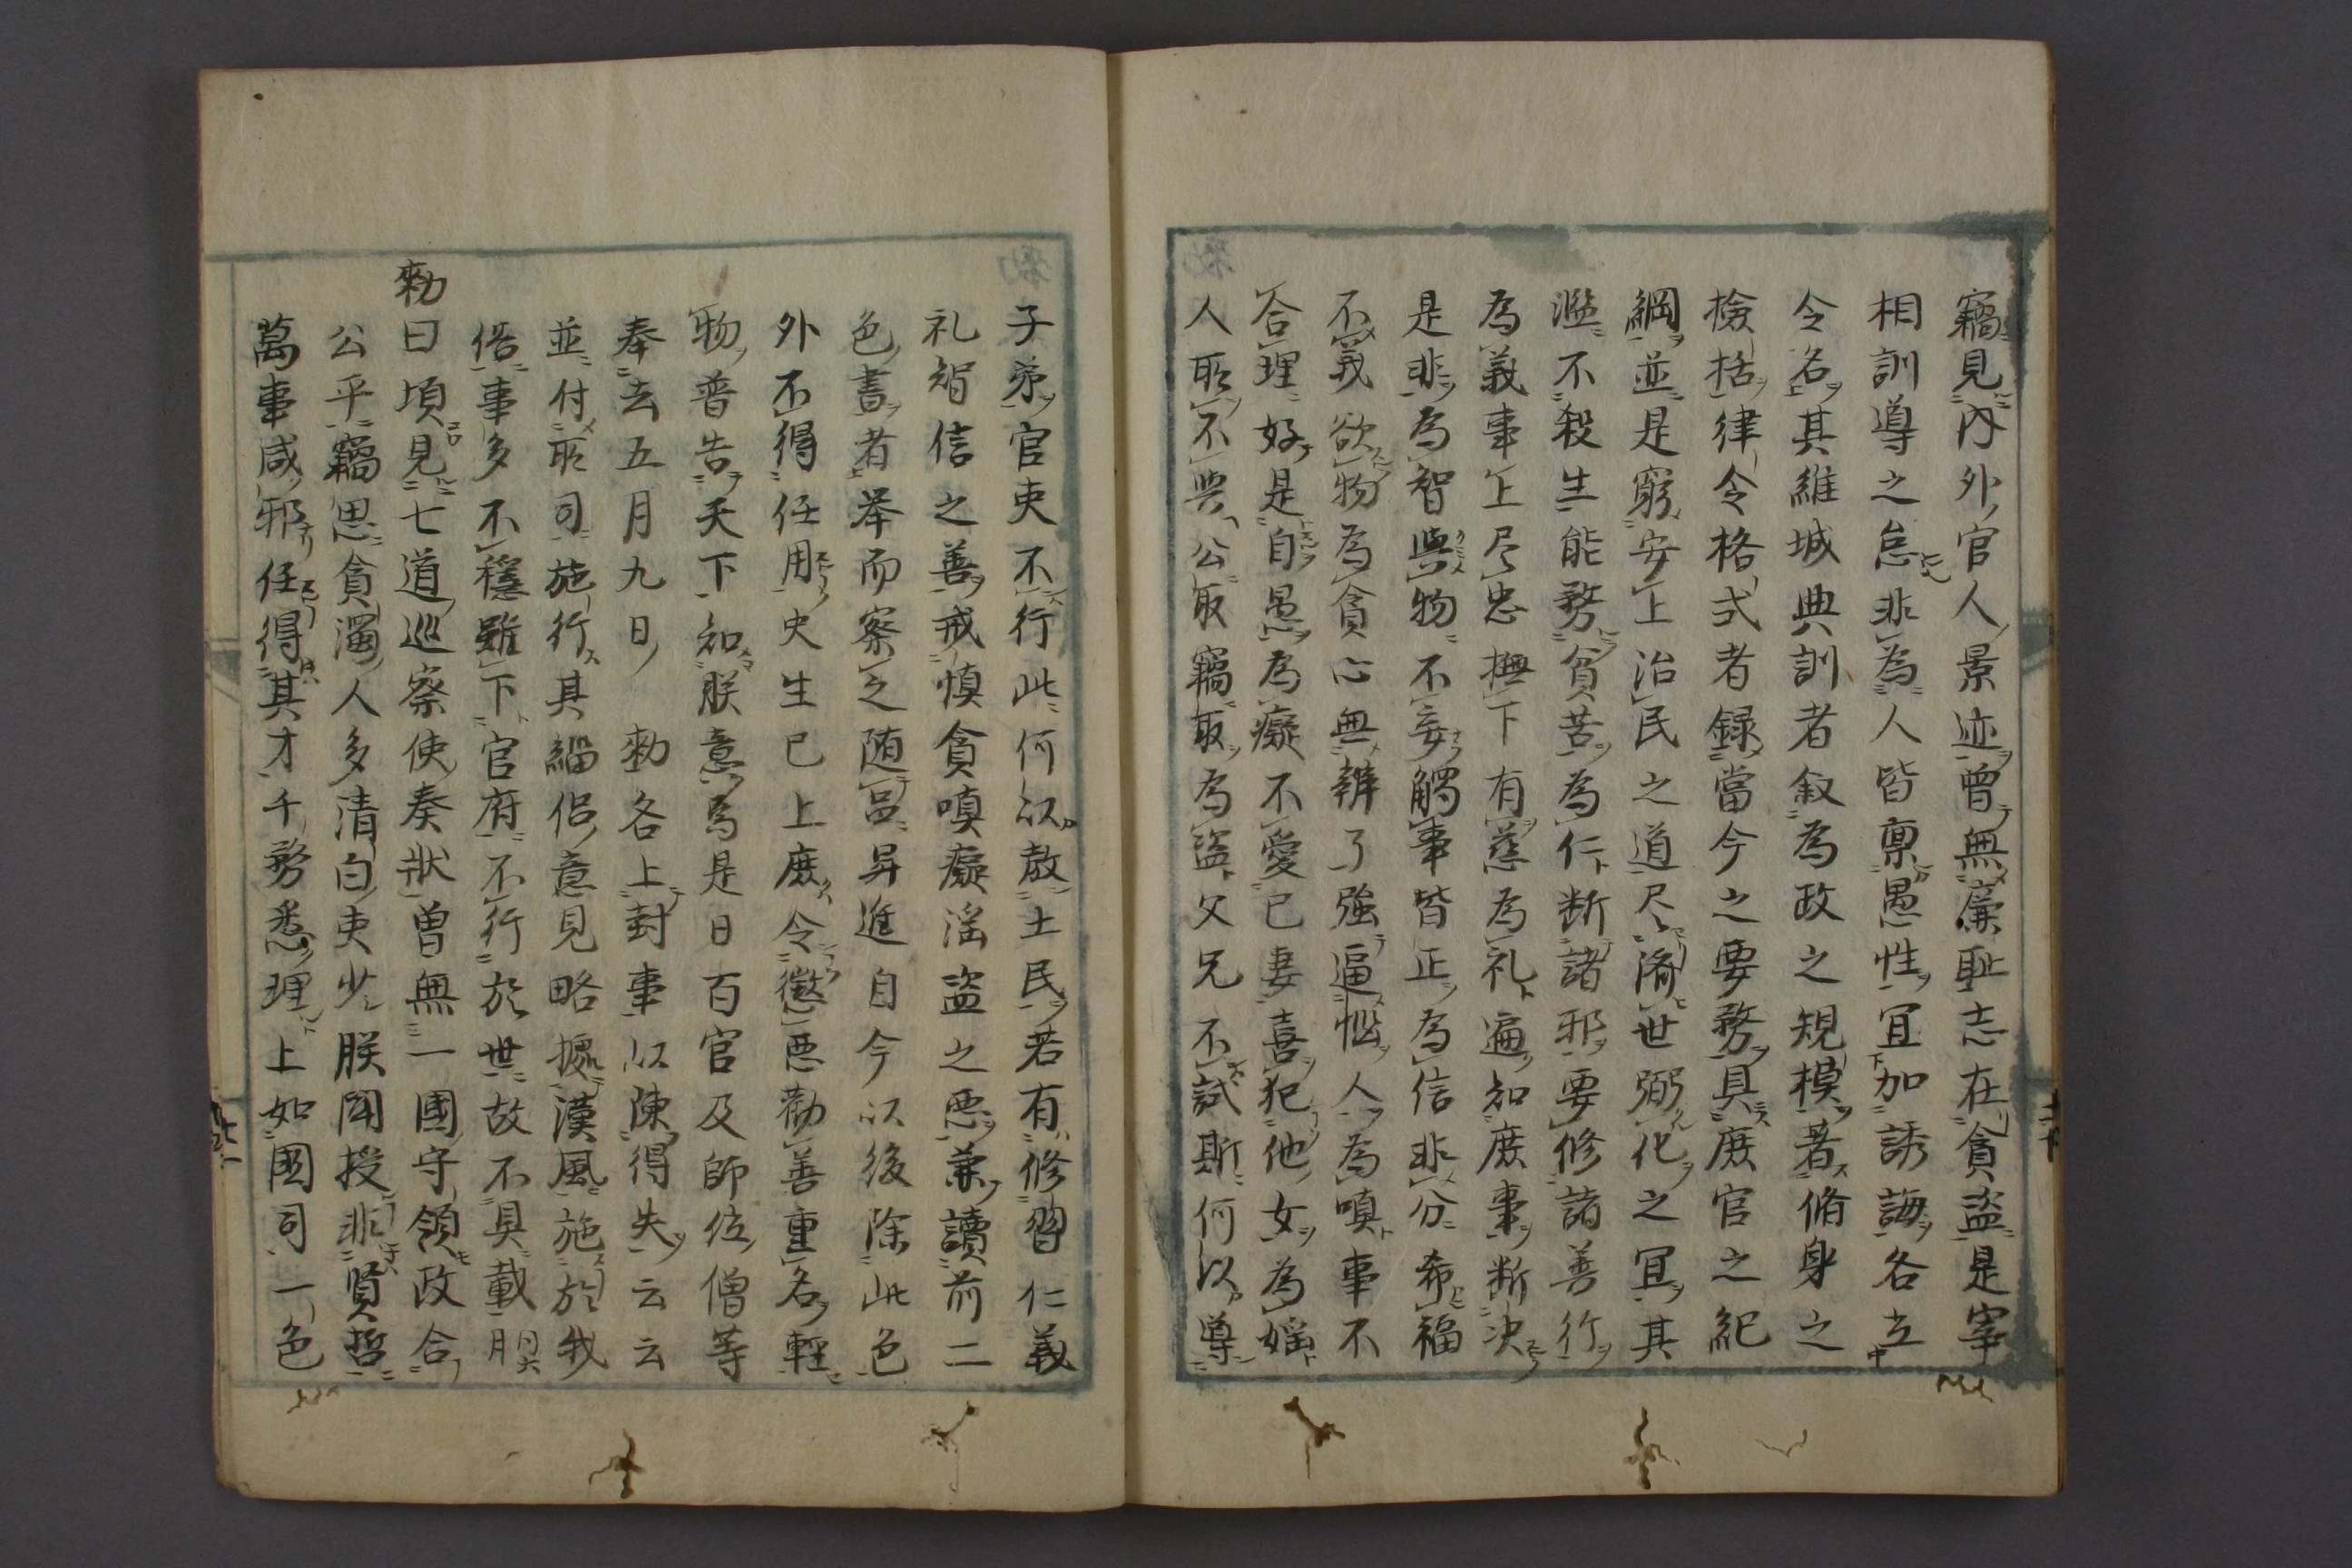 竊見内外官人景迹曽無廉恥志在貪盗是宰
相訓導之怠非為人皆禀愚性宜加誘誨各立
令名其維城典訓者叙為政之規模著脩身之
撿括律令格式者録當今之要務具庶官之紀
綱並是窮安上治民之道尽濟世弼化之冝其
濫不殺生能務貧苦為仁断諸邪要修諸善行
為義事上尽忠撫下有慈為礼遍知庶事断决
是非為智與物不妄觸事皆正為信非分希福
不義欲物為貪心無辨了強逼惱人為嗔事不
合理好是自愚為癡不愛己妻喜犯他女為婬
人所不與公取竊取為盗父兄不試斯何以導
子弟官吏不行此何以教士民若有修習仁義
礼智信之善戒慎貪嗔癡淫盗之悪兼讀前二
色書者举而察之随品昇進自今以後除此色
外不得任用史生已上庶令懲悪勧善重名軽
物普告天下知朕意焉是日百官及師位僧等
奉去五月九日　勅各上封事以陳得失云云
並付所司施行其緇侶意見略據漢風施於我
俗事多不穏雖下官府不行於世故不具載朔日大
勅曰頃見七道巡察使奏状曽無一國守領政合
公平竊思貪濁人多清白吏少朕聞授非賢哲
萬事咸邪任得其才千務悉理上如國司一色